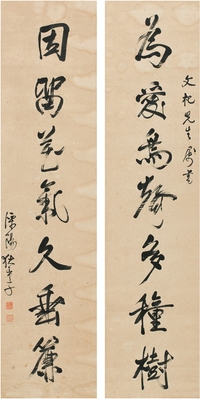 文杞先生屬書
為愛鳥聲多種樹
因留花氣久垂簾
溧陽狄平子